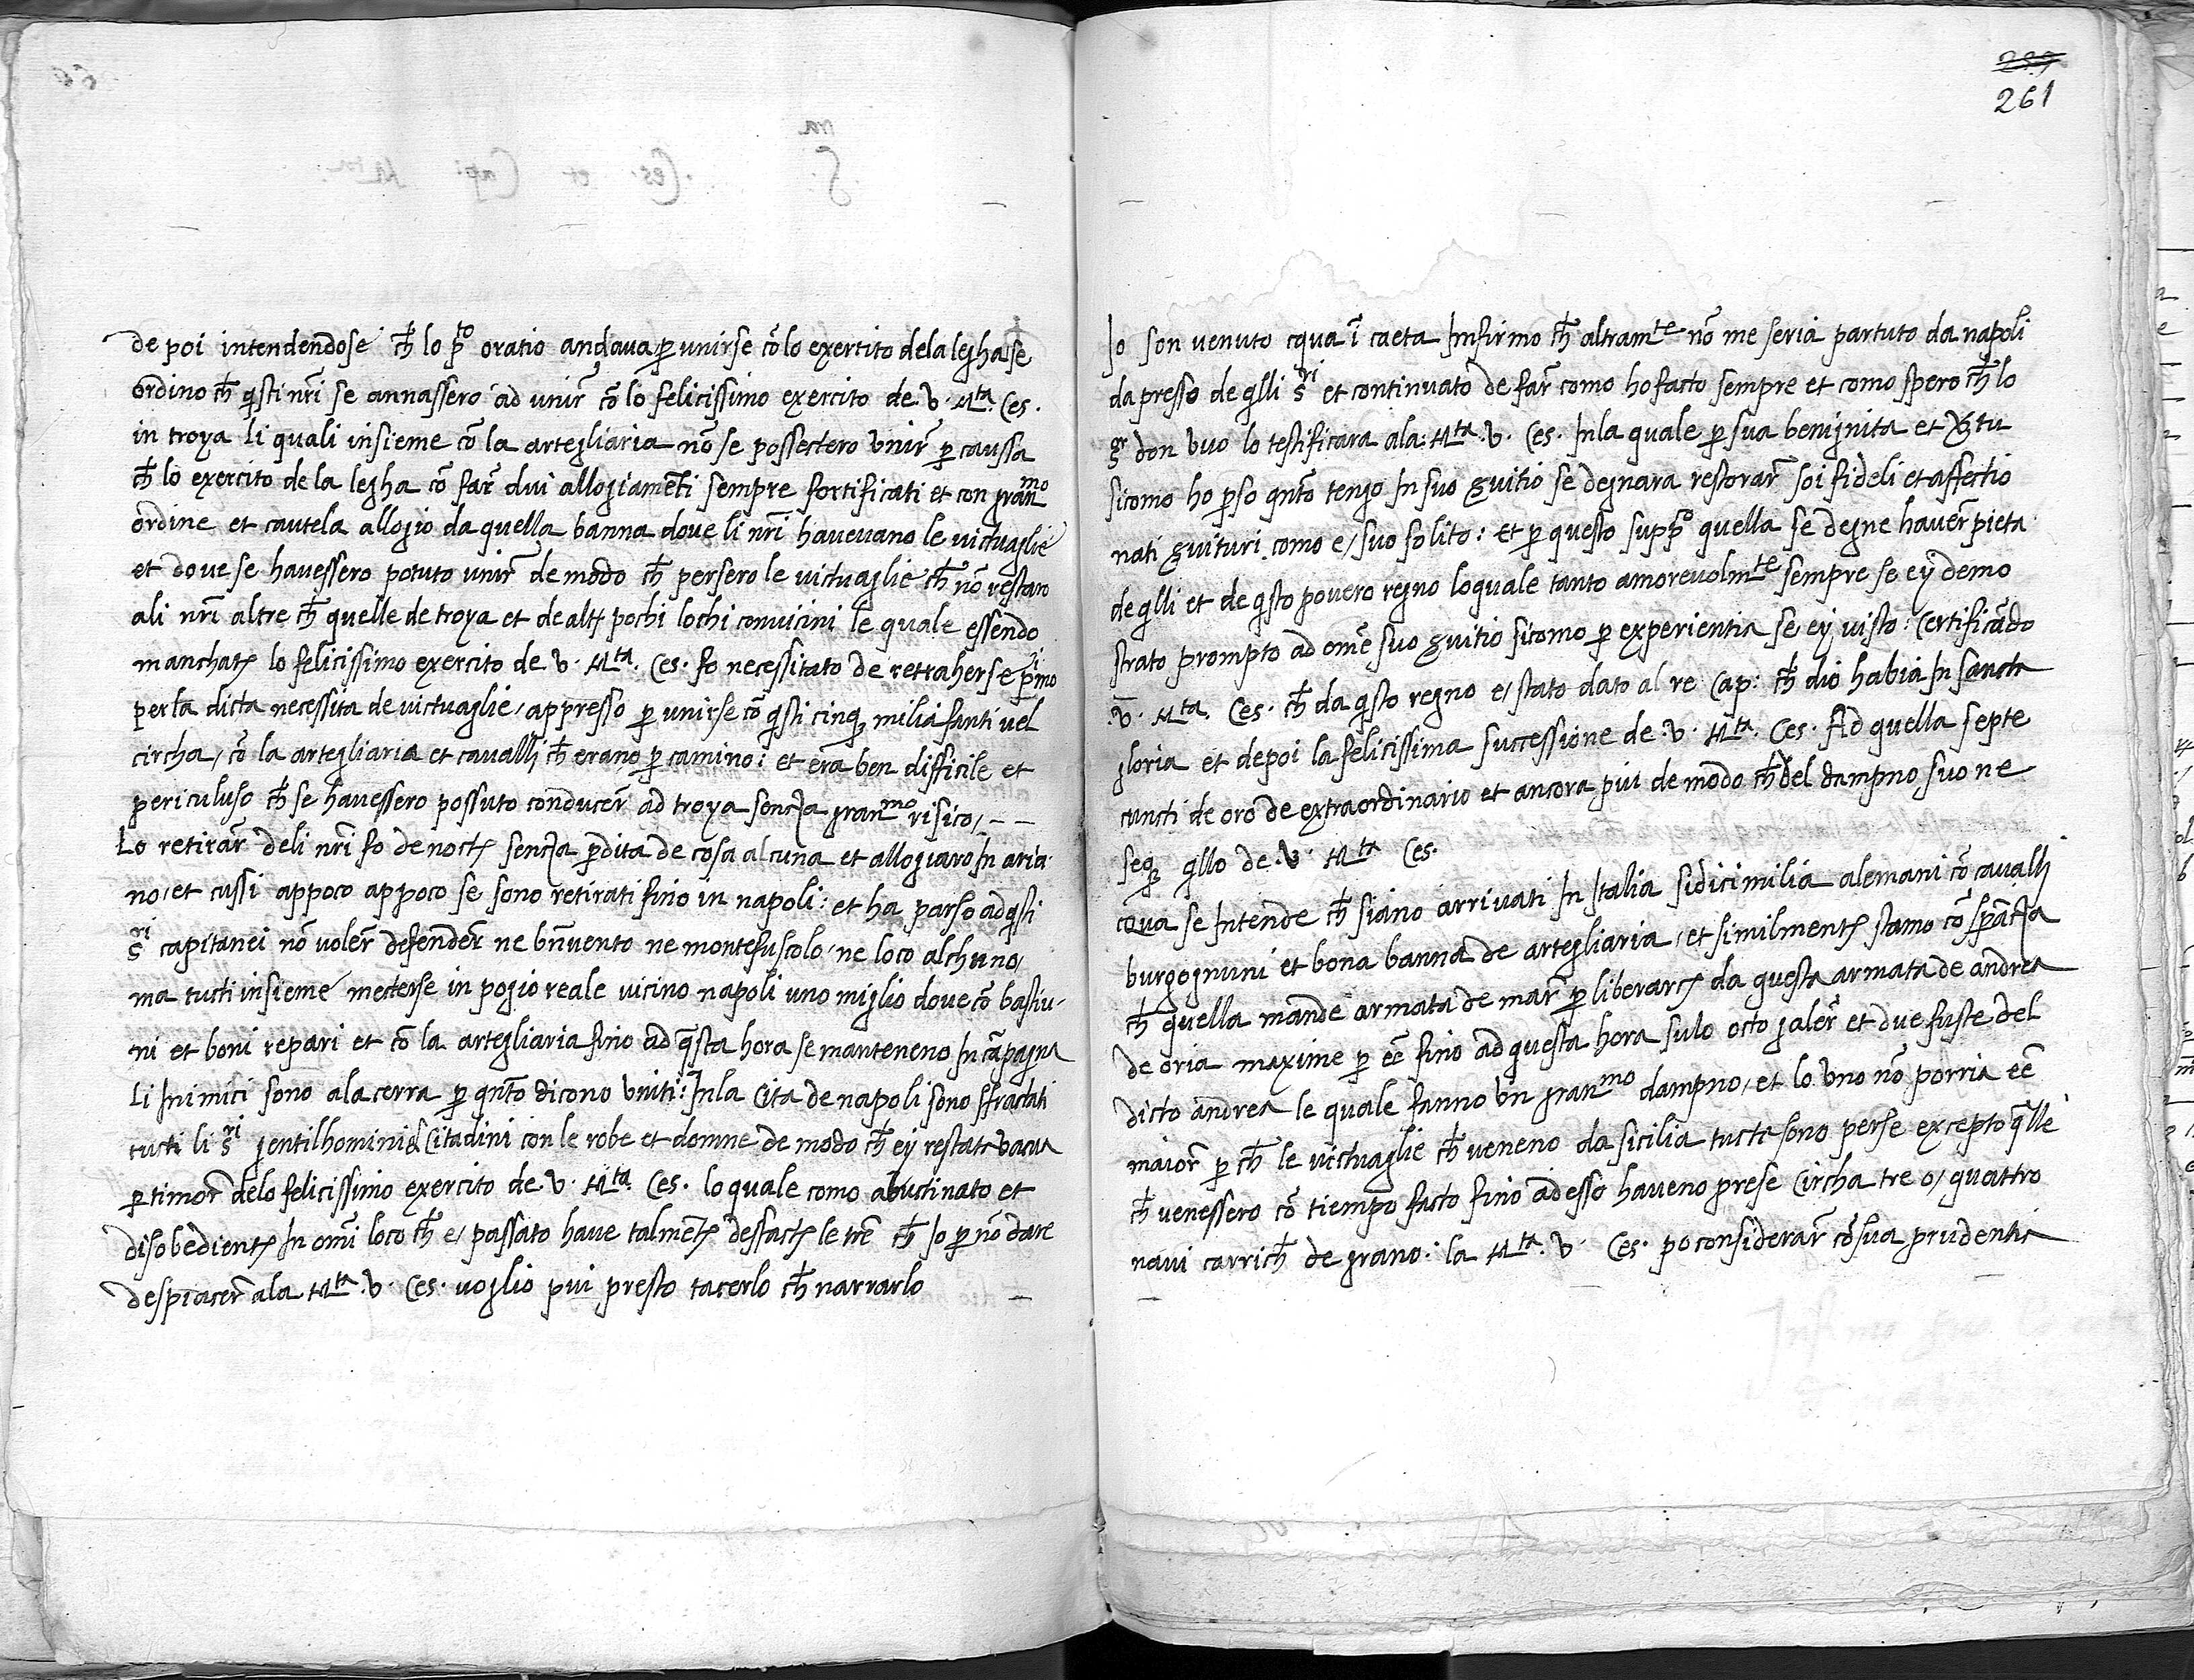 de poi intendendose ch̄ lo p̄to oratio andava p unirse cō lo exertito dela legha se
ordino ch̄ q̄sti nr̄i se annassero ad unir̄ cō lo felicissimo exercito de v. Mta. Ces.
in troya li quali insieme cō la artegliaria nō se possectero unir̄ p caussa
ch̄ lo exercito de la legha cō far̄ dui allogiamēti sempre fortificati et con granmo
ordine et cautela allogio da quella banna dove li nr̄i havevano le victuaglie
et dove se havessero potuto unir̄ de modo ch̄ persero le victuaglie ch̄ nō restaro
ali nr̄i altre ch̄ quelle de troya et de altr̄ pochi lochi convicini le quale essendo
manchate lo felicissimo exercito de v. Mta. Ces. fo necessitato de retraherse pimo
per la dicta necessita de victuaglie, appresso p unirse cō q̄sti cinq; milia fanti vel
circha, cō la artegliaria et cavalli ch̄ erano p camino: et era ben difficile et
periculuso ch̄ se havessero possuto conducer̄ ad troya sencza granmo risico, - -
Lo retirar̄ deli nr̄i fo de nocte sencza p̄dita de cosa alcuna et allogiaro In aria
no, et cussi appoco appoco se sono retirati fino in napoli: et ha parso ad q̄sti
sri capitanei nō voler̄ defender̄ ne bn̄vento ne montefuscolo, ne loco alchuno,
ma tucti insieme mecterse in pogio reale vicino napoli uno miglio dove cō bastiu-
ni et boni repari et cō la artegliaria fino ad q̄sta hora se manteneno In cāpagna
Li Inimici sono ala cerra p qn̄to dicono uniti: In la Cita de napoli sono sfractati
tucti li sri gentilhomini & Citadini con le robe et donne de modo ch̄ ey restata vacua
p timor̄ delo felicissimo exercito de v. Mta. Ces. lo quale como abuctinato et
disobediente In om̄i loco ch̄ e, passato have talmēte desfacte le tr̄e ch̄ Io p nō dare
despiacer̄ ala Mta. v. Ces. voglio piu presto tacerlo ch̄ narrarlo
299
261
Io son venuto cqua ī caeta Infirmo ch̄ altramte nō me seria partuto da napoli
da presso de q̄lli sri et continuato de far̄ como ho facto sempre et como spero ch̄ lo
sr don Uuo lo testificara ala Mta. v. Ces. In la quale p sua benignita et v̄tu
sicomo ho p̄so qn̄to tengo In suo s̄vitio se degnara restorar̄ soi fideli et affectio
nati s̄vituri como e, suo solito: et p questo suppo quella se degne haver̄ pieta
de q̄lli et de q̄sto povero regno lo quale tanto amorevolmte sempre se ey demo
strato prompto ad om̄e suo s̄vitio sicomo p experientia se ey visto: Certificādo
.v. Mta. Ces. ch̄ da q̄sto regno e, stato dato al re Cap: ch̄ dio habia In sancta
gloria et depoi la felicissima successione de .v. Mta. Ces. Ad quella septe
cuncti de oro de extraordinario et ancora piu de modo ch̄ del dampno suo ne
seq; q̄llo de .v. Mta Ces.
cqua se Intende ch̄ siano arrivati In Italia sidici milia alemani cō cavalli
burgognuni et bona banna de artegliaria, et similmente stamo cō sperācza
ch̄ quella mande armata de mar̄ p liberarce da questa armata de andrea
de oria maxime p ēe fino ad questa hora sulo octo galer̄ et due fuste del
dicto andrea le quale fanno un granmo dampno, et lo uno nō porria ēe
maior̄ p ch̄ le victuaglie ch̄ veneno da sicilia tucte sono perse excepto q̄lle
ch̄ venessero cō tiempo facto fino adesso haveno prese Circha tre o, quattro
navi carrich̄ de grano: la Mta. v. Ces. po considerar̄ cō sua prudentia